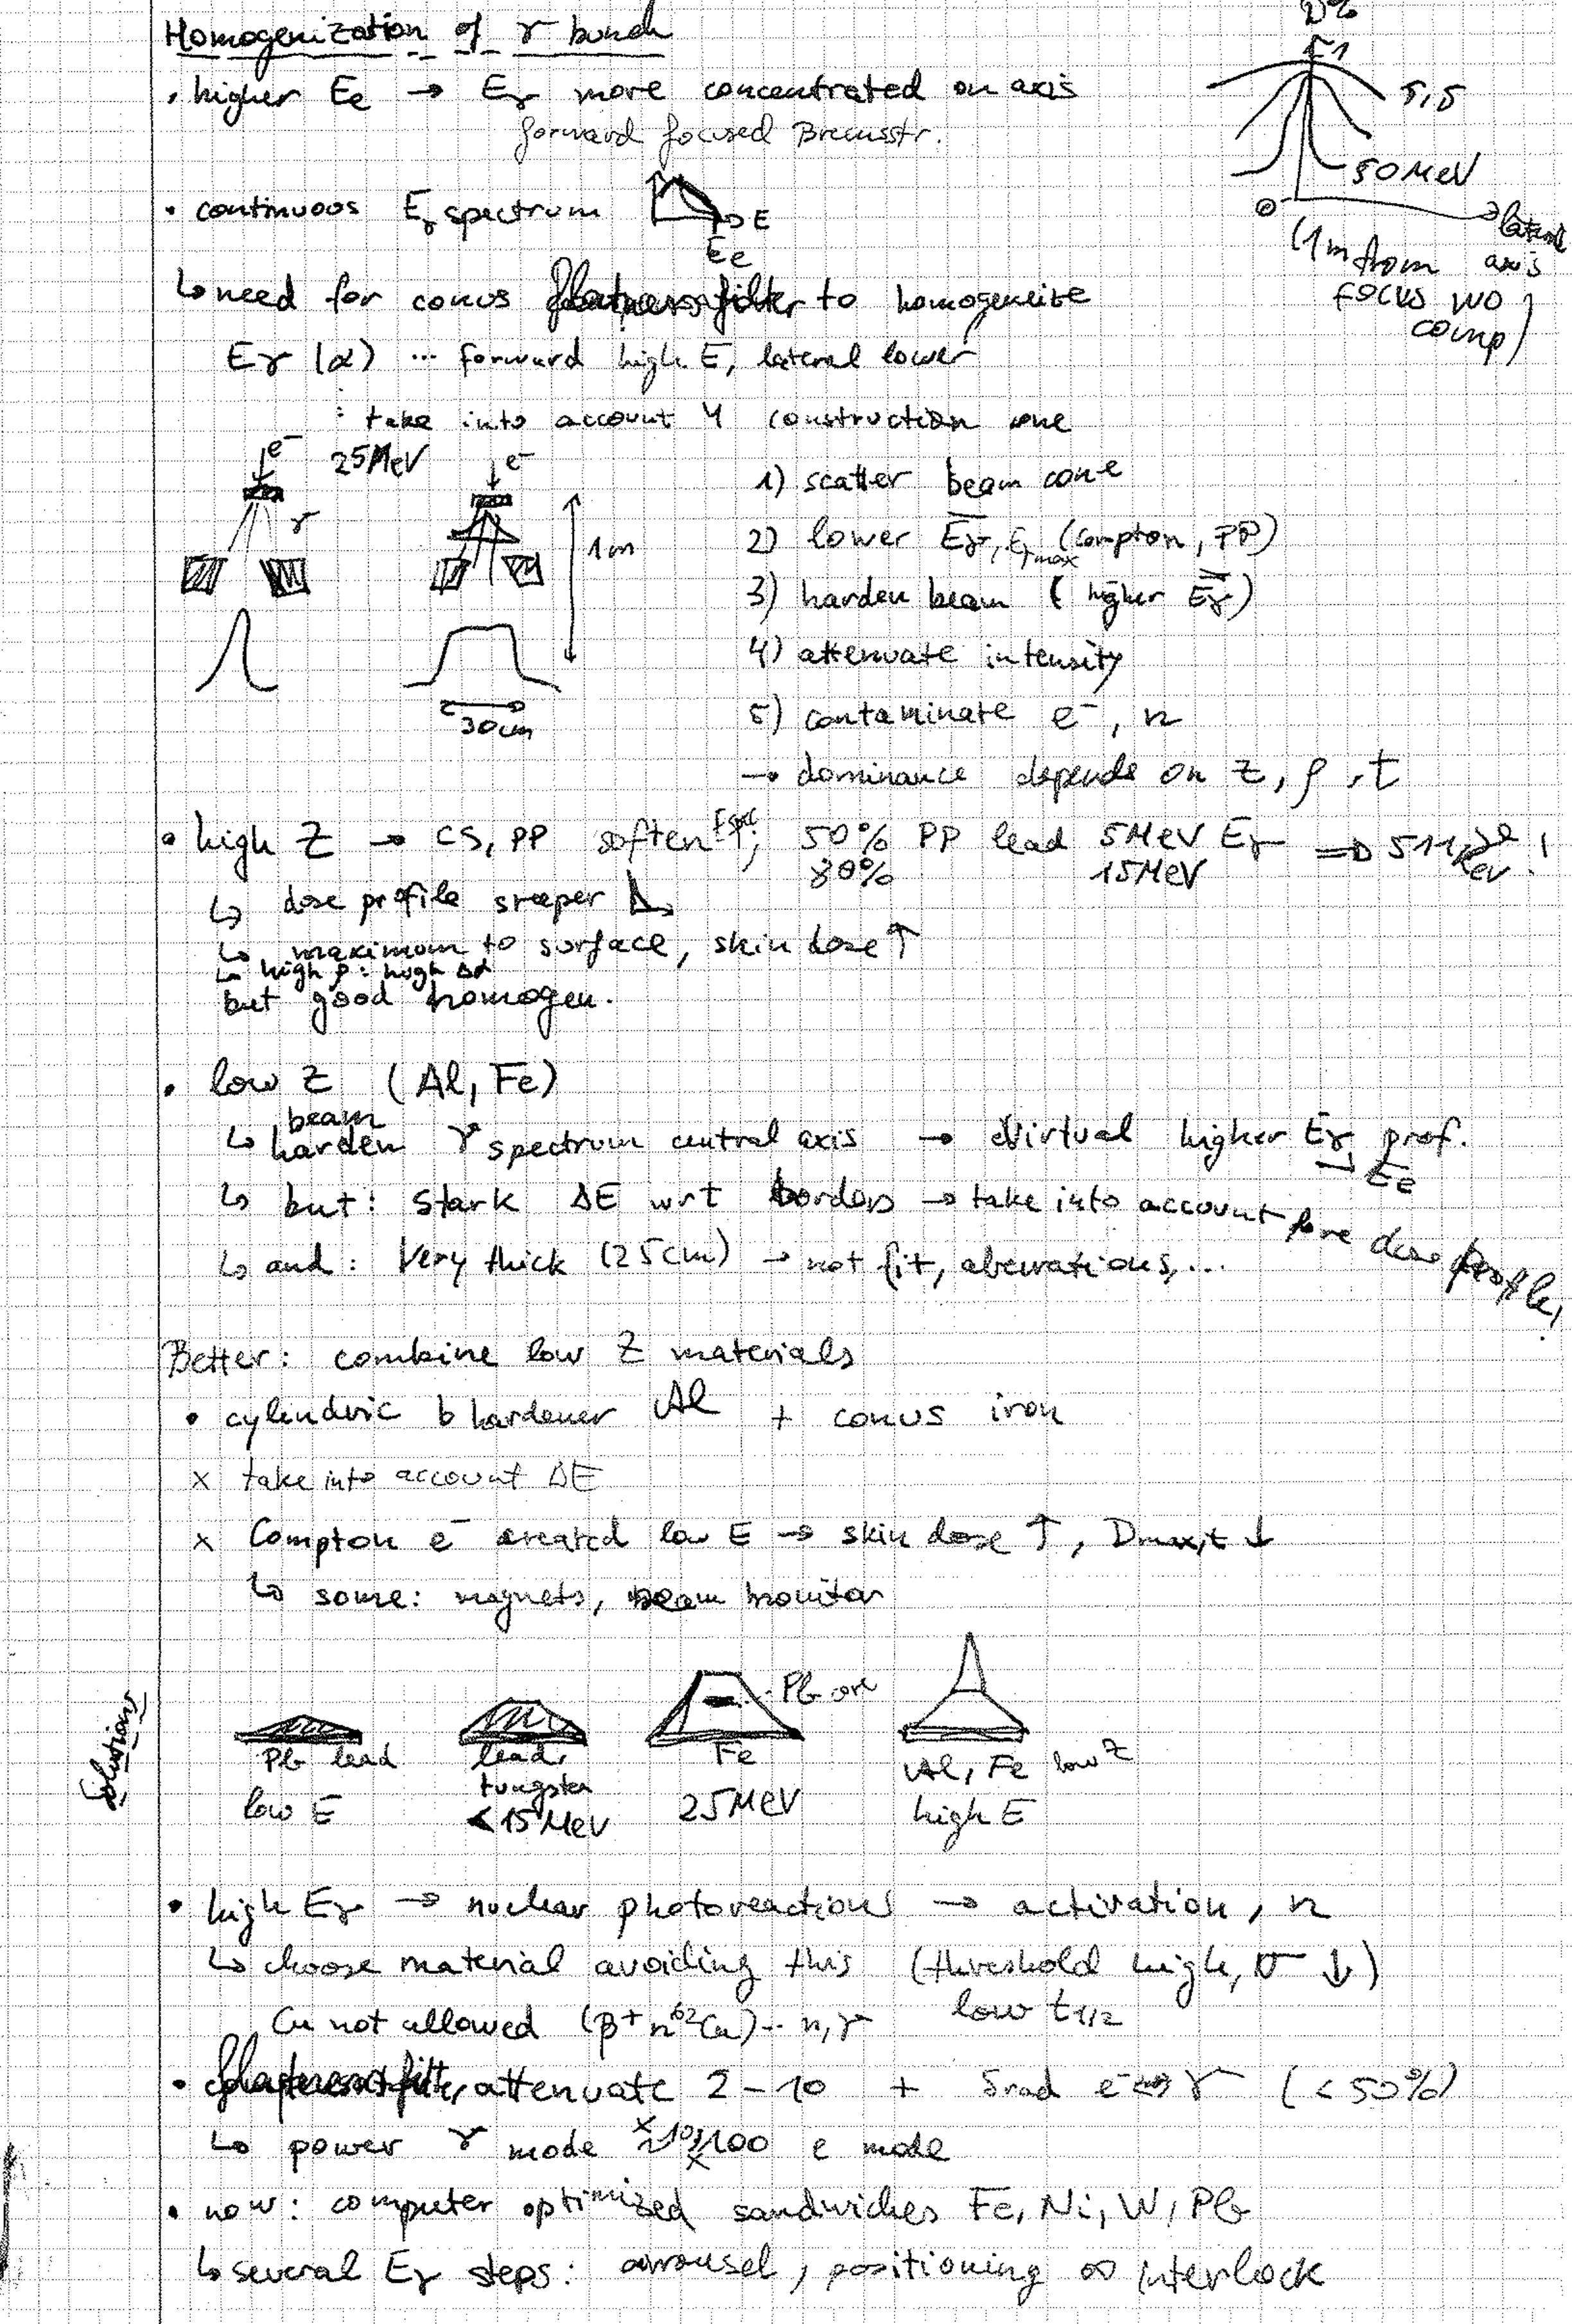 Homogenization of γ bunch
• higher Ee → Eγ more concentrated on axis
forward focused Bremsstr.
D%
1
5,5
50 MeV
0
lateral axis
(1m from
focus wo
comp)
• continuous Eγ spectrum
E
Ee
↳ need for conus flatness filter to homogeneize
Eγ (α) ... forward high E, lateral lower
: take into account 4 construction cone
e⁻ 25 MeV
γ
e⁻
1m
30cm
1) scatter beam cone
2) lower Eγ, Eγmax (Compton, PP)
3) harden beam (higher Eγ)
4) attenuate intensity
5) contaminate e⁻, n
→ dominance depends on Z, ρ, t
• high Z → CS, PP soften Espec; 50% PP lead 5MeV Eγ ⇒ 511 keV !
80% 15MeV
↳ dose profile steeper
↳ maximum to surface, skin dose ↑
↳ high ρ: high Δd
but good homogen.
• low Z (Al, Fe)
↳ beam harden γ spectrum central axis → virtual higher Eγ prof.
Ee
↳ but: stark ΔE wrt borders → take into account for dose profile!
↳ and: Very thick (25cm) → not fit, aberrations, ...
Better: combine low Z materials
• cylindric b hardener Al + conus iron
x take into account ΔE
x Compton e⁻ created low E → skin dose ↑, Dmax,t ↓
↳ some: magnets, beam monitor
Solutions
Pb lead
low E
lead, tungsten
< 15 MeV
Pb core
Fe
25 MeV
Al, Fe low Z
high E
• high Eγ → nuclear photoreactions → activation, n
↳ choose material avoiding this (threshold high, σ ↓)
low t1/2
Cu not allowed (β⁺ n ⁶²Cu) .. n,γ
• flatness filt, attenuate 2 – 10 + Srad e⁻↔γ (<50%)
↳ power γ mode ~ 10x, 100x e mode
• now: computer optimized sandwiches Fe, Ni, W, Pb
↳ several Eγ steps: carrousel, positioning ∞ interlock